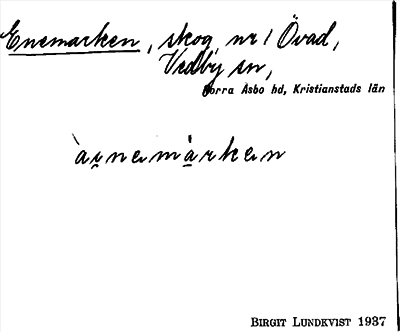 Enemarken, skog, nr 1 Övad,
Vedby sn,
Norra Åsbo hd, Kristianstads län
`ai̯nemàrken
BIRGIT LUNDKVIST 1937